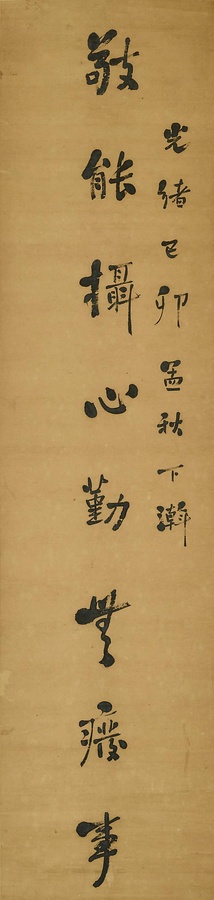 光緒己卯孟秋下澣
敬能攝心勤無癈事